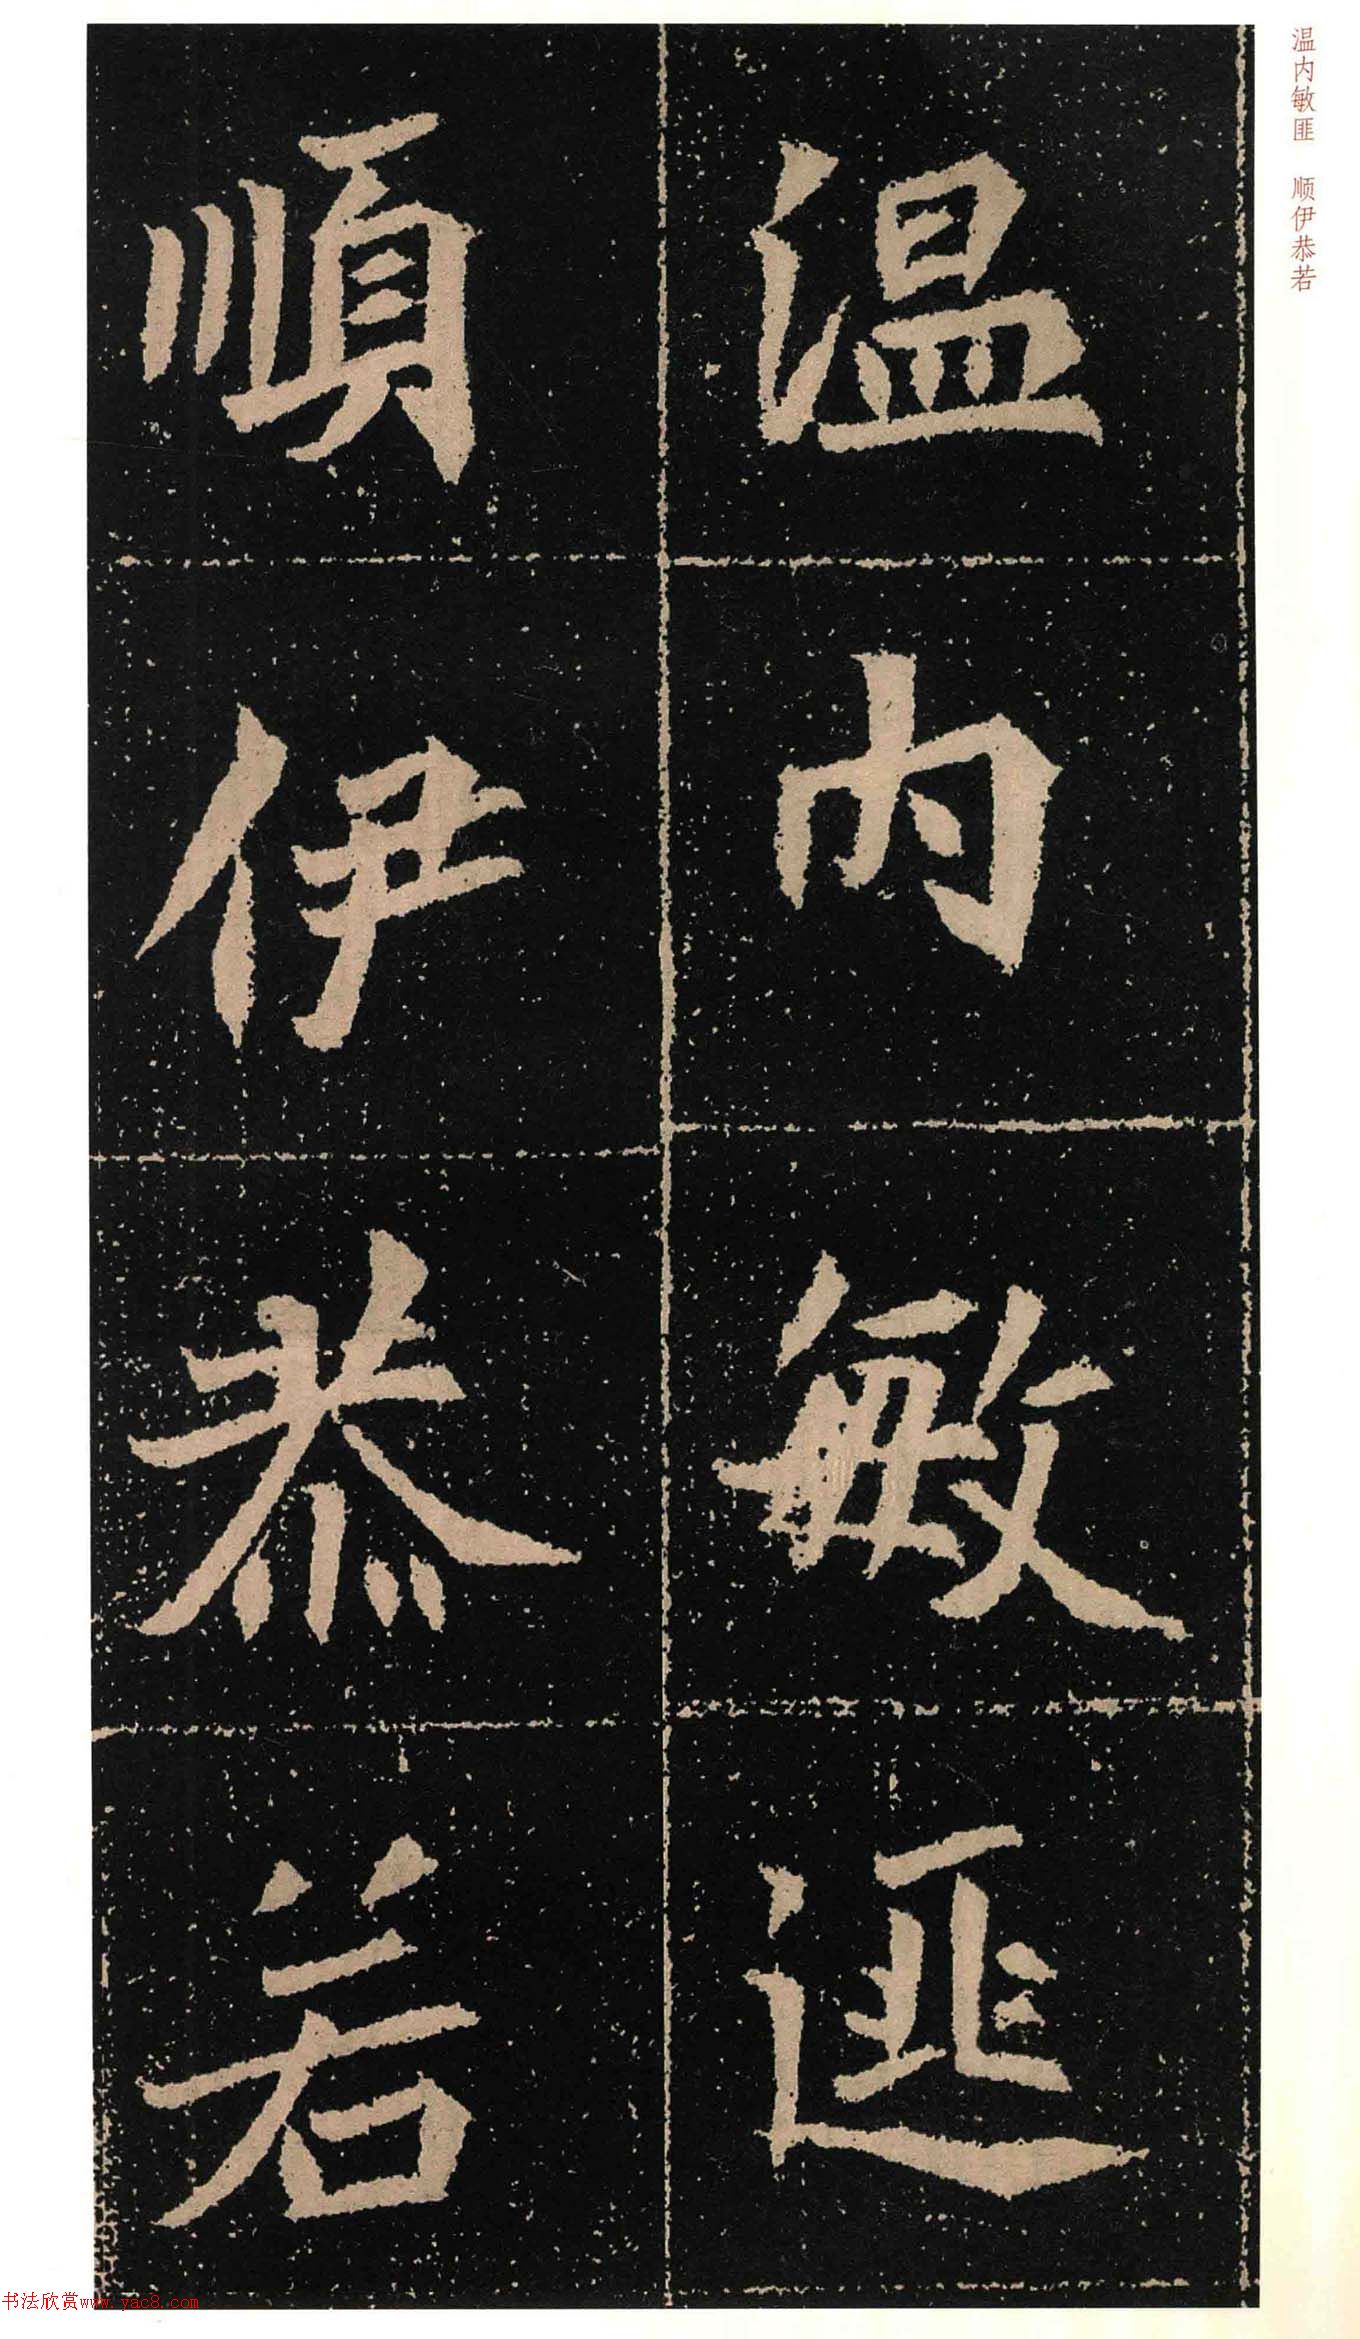 温内敏匪　顺伊恭若
温内敏匪
順伊恭若
书法欣赏www.yac8.com